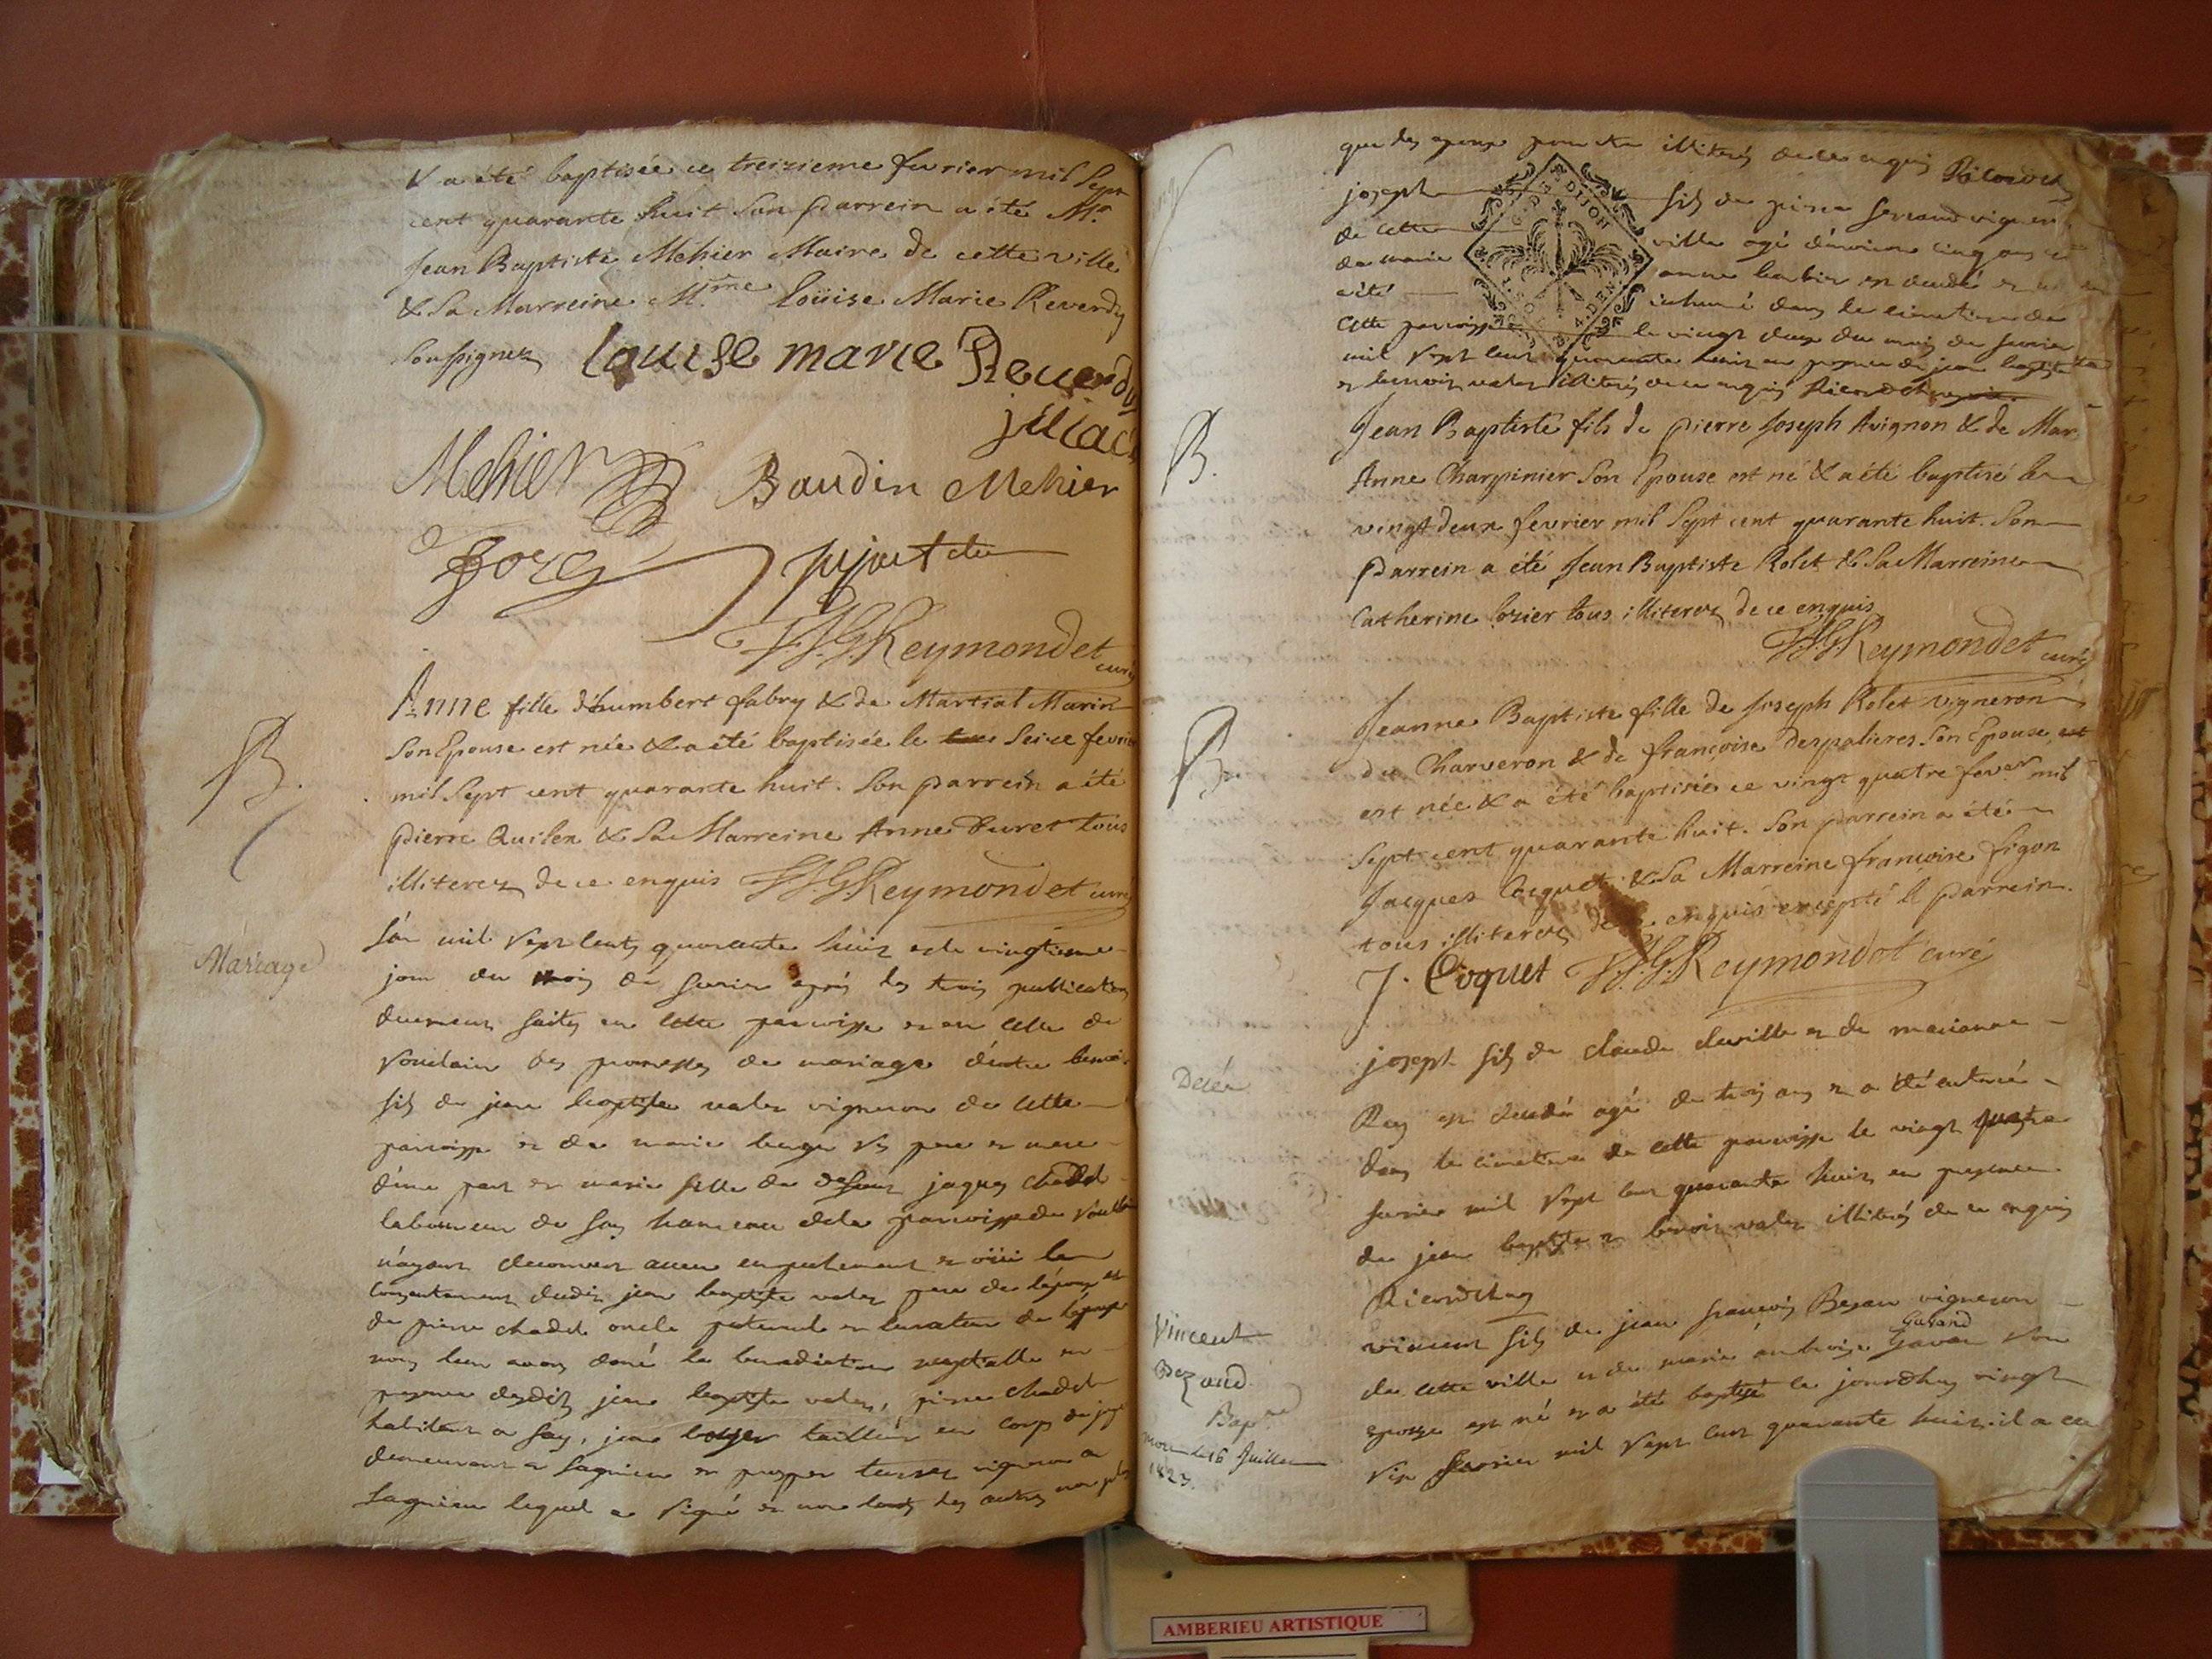 & a été baptisée ce treizieme fevrier mil Sept
cent quarante huit Son Parrein a été Mr.
Jean Baptiste Méhier Maire de cette ville
& Sa Marreine M.me Loüise Marie Reverdy
Soussignez
louise marie Reverdy
Mehier
Baudin Mehier
pijout
F.J.G.Reymondet curé
B.
Anne fille d'humbert fabry & de Martial Marin
Son Epouse est née & a été baptisée le Seize fevrier
mil Sept cent quarante huit. Son parrein a été
pierre Quilen & Sa Marreine Anne Turet tous
illiterez de ce enquis F.J.G.Reymondet curé
Mariage
L'an mil Sept cents quarante huit et le vingtieme
jour du mois de fevrier après les trois publications
deuement faites en cette paroisse et en celle de
des promesses de mariage d'entre benoit
fils de jean baptiste valez vigneron de cette
paroisse et de marie ses pere et mere
d'une part et marie fille de deffunt jaques chadel
laboureur de fay hameau de la paroisse de
n'ayant decouvert aucun empechement et oüi le
consentement dudit jean baptiste valez pere de l'époux et
de pierre chadel oncle paternel et curateur de l'épouse
nous leur avons doné la benediction nuptialle en
presence desdits jean baptiste valez, pierre chadel
habitant a fay, jean tailleur en corps de jupe
demeurant a Lagnieu et vigneron a
Lagnieu lequel a Signé et non les autres non plus
que les epoux pour etre illiterés de ce enquis
G. DE DIJON
joseph fils de pierre vigneron
de cette ville agé d'environ cinq ans et
de marie anne est decedé et
a été inhumé dans le cimetiere de
cette paroisse le vingt deux du mois de fevrier
mil Sept cent quarante huit en presence de jean baptiste
et benoit valez illiterés de ce enquis
B.
Jean Baptiste fils de pierre Joseph Avignon & de Mar
Anne Charpinier Son Epouse est né & a été baptisé le
vingt deux fevrier mil Sept cent quarante huit. Son
parrein a été Jean Baptiste Rolet & Sa Marreine
Catherine tous illiterez de ce enquis
F.J.G.Reymondet curé
B.
Jeanne Baptiste fille de Joseph Rolet vigneron
du Charveron & de françoise Despalieres Son Epouse
est née & a été baptisée ce vingt quatre fever mil
Sept cent quarante huit. Son parrein a été
Jacques Coquet & Sa Marreine françoise figon
tous illiterez de ce enquis excepté le parrein.
J. Coquet F.J.G.Reymondet curé
Decés
joseph fils de claude et de marianne
Rey est decedé agé de trois ans et a été enterré
dans le cimetiere de cette paroisse le vingt quatre
fevrier mil Sept cent quarante huit en presence
de jean baptiste et benoit valez illiterés de ce enquis
Vincent
Bezand.
mort le 16 Juillet
1823.
vincent fils de jean françois Besan vigneron
Gavand
de cette ville et de marie ambroise Gavan Son
epouse est né et a été baptisé le jourdhuy vingt
Six fevrier mil Sept cent quarante huit. il a eu
AMBERIEU ARTISTIQUE